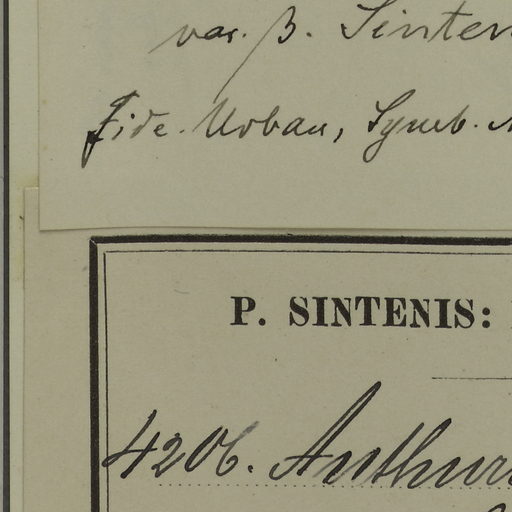 var. β. Sinten
Fide. Urban, Symb. A
P. SINTENIS:
4206. Anthur